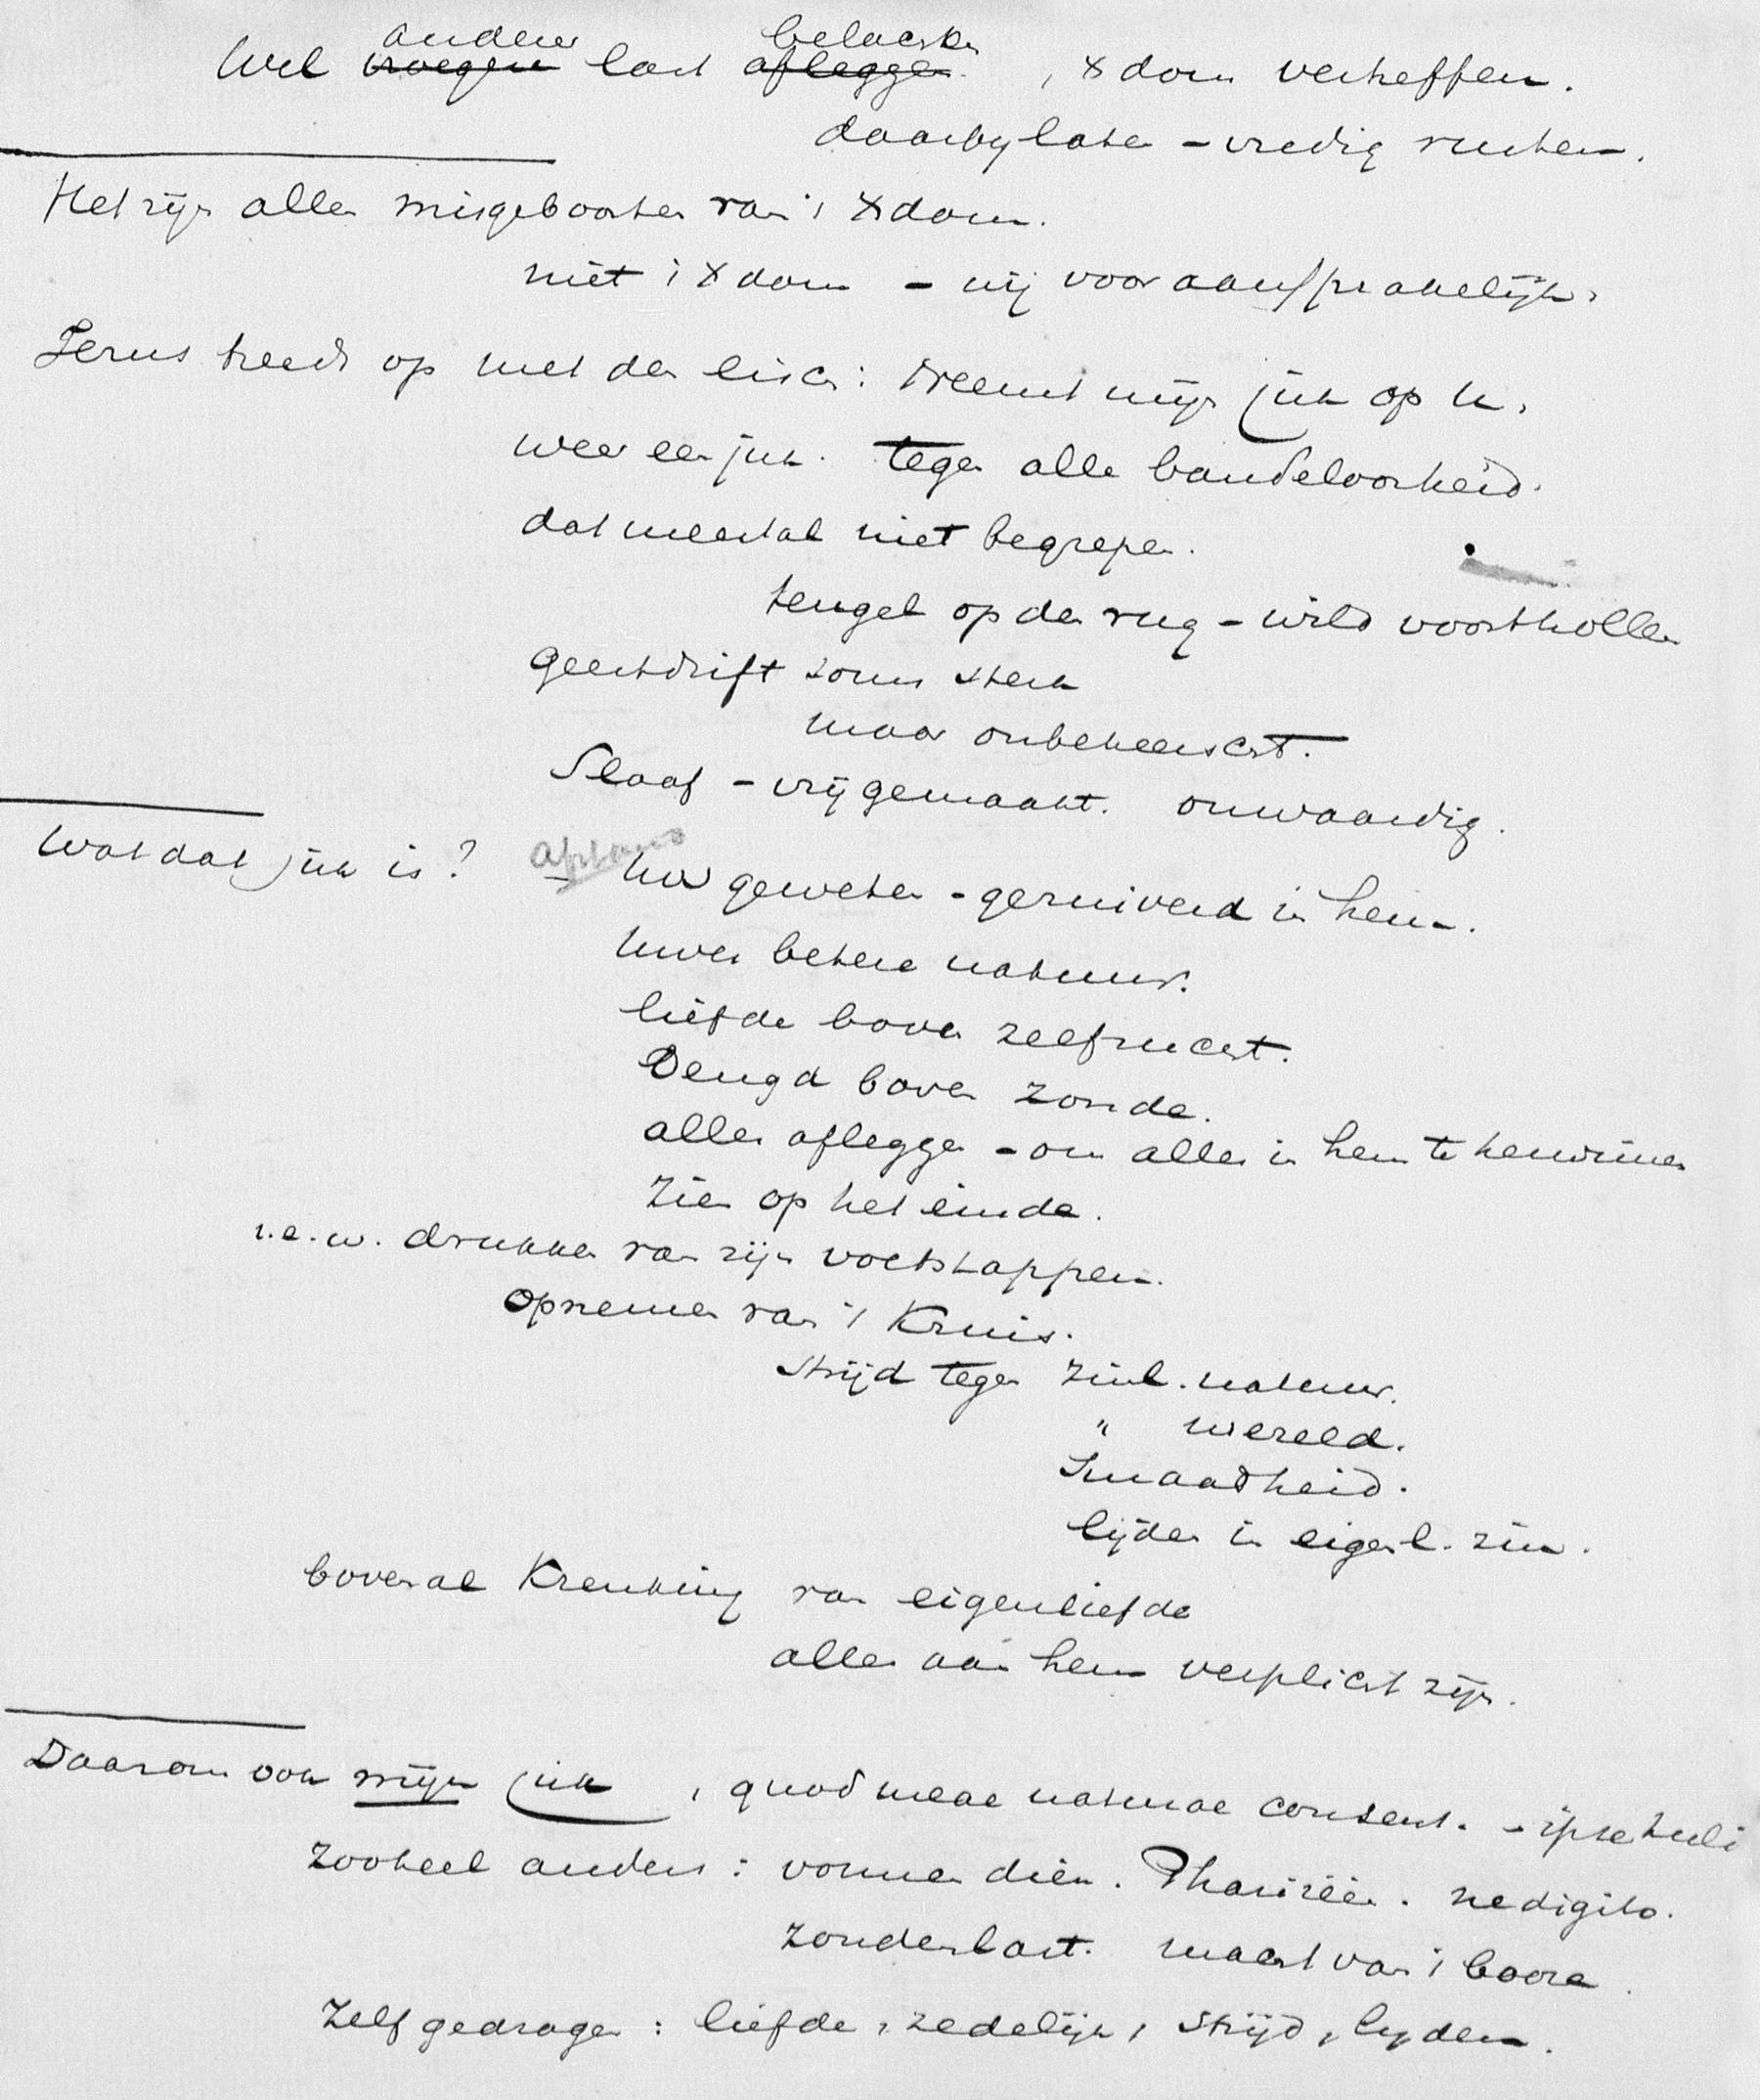 anders belachen
Wel vroegen last afleggen, xdom verheffen.
daarbij laten – vredig rusten.
Het zijn allen misgeboorten van 't xdom.
niet 't xdom – wij voor aansprakelijk.
Jezus treedt op met den eisch: Neemt mijn juk op u.
weer een juk. tegen alle bandeloosheid.
dat meestal niet begrepen.
teugel op den rug – wild voorthollen
geestdrift soms sterk
maar onbeheerscht.
Slaaf – vrijgemaakt. onwaardig.
Wat dat juk is? uw geweten – gezuiverd in hem.
uwer betere natuur.
liefde boven zelfzucht.
Deugd boven zonde.
alles afleggen – om alles in hem te herwinnen
Zien op het einde.
i.e.w. drukken van zijn voetstappen.
opnemen van 't Kruis.
strijd tegen zinl. natuur.
" wereld.
Smaadheid.
lijden in eigenl. zin.
bovenal Krenking van eigenliefde
alles aan hem verplicht zijn.
Daarom ook mijn juk, quod meae naturae consent. – ipse tuli
Zooheel anders: vormendien. Phariseën. ne digito.
Zondenlast. macht van 't booze.
Zelf gedragen: liefde, zedelijk, strijd, lyden.